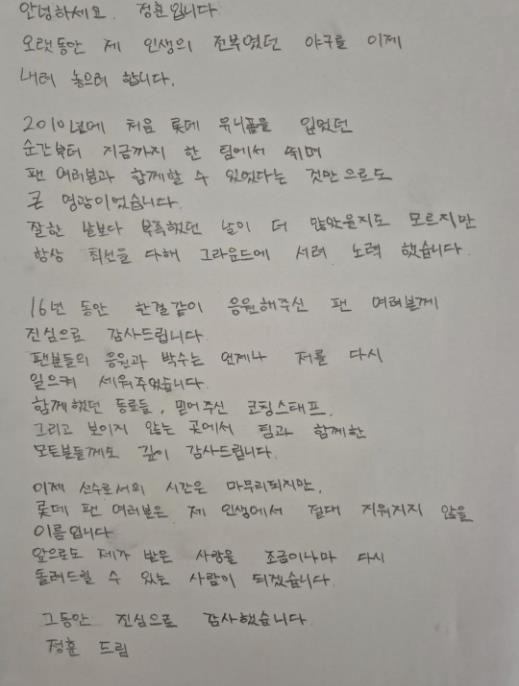 안녕하세요. 정훈입니다
오랫동안 제 인생의 전부였던 야구를 이제
내려 놓으려 합니다.
2010년에 처음 롯데 유니폼을 입었던
순간부터 지금까지 한 팀에서 뛰며
팬 여러분과 함께할 수 있었다는 것만으로도
큰 영광이었습니다.
잘한 날보다 부족했던 날이 더 많았을지도 모르지만
항상 최선을 다해 그라운드에 서려 노력 했습니다.
16년 동안 한결같이 응원해주신 팬 여러분께
진심으로 감사드립니다
팬분들의 응원과 박수는 언제나 저를 다시
일으켜 세워주었습니다.
함께했던 동료들, 믿어주신 코칭스태프.
그리고 보이지 않는 곳에서 팀과 함께한
모든분들께도 깊이 감사드립니다.
이제 선수로서의 시간은 마무리되지만,
롯데 팬 여러분은 제 인생에서 절대 지워지지 않을
이름입니다
앞으로도 제가 받은 사랑을 조금이나마 다시
돌려드릴 수 있는 사람이 되겠습니다.
그동안 진심으로 감사했습니다
정훈 드림